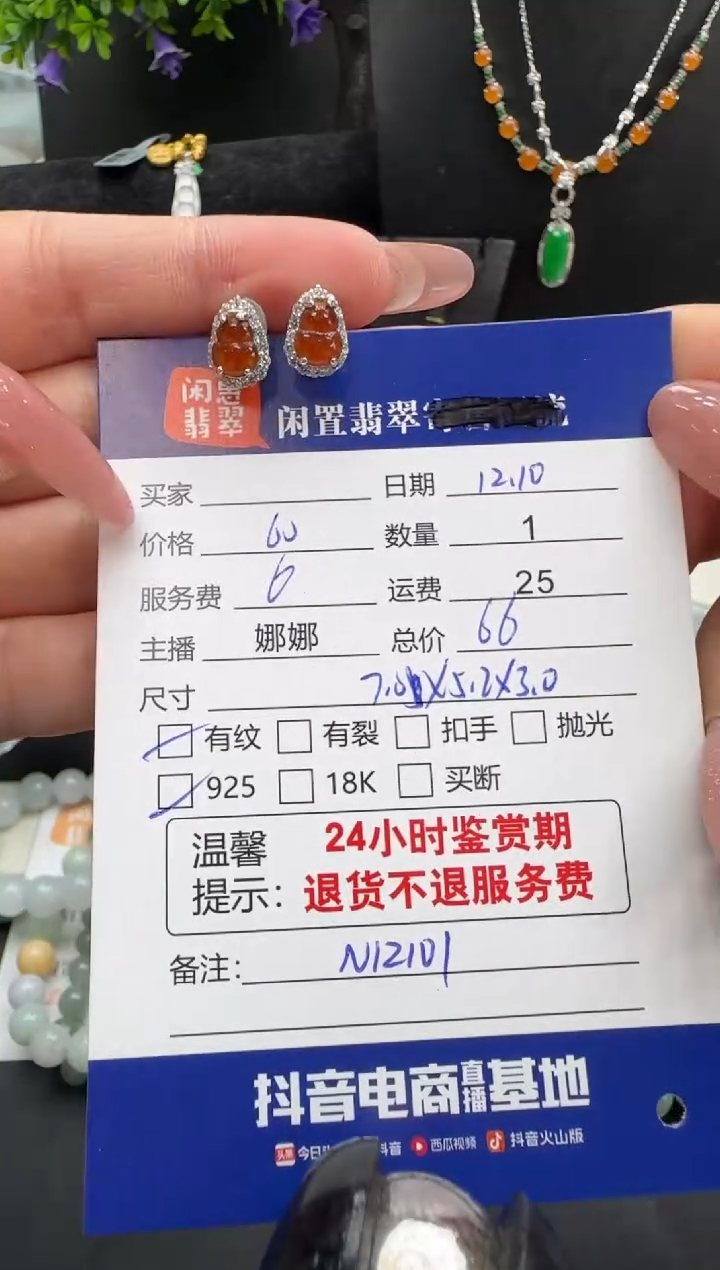 闲愚
翡翠
闲置翡翠
买家 日期 12.10
价格 60 数量 1
服务费 6 运费 25
主播 娜娜 总价 66
尺寸 7.0X5.2X3.0
有纹 有裂 扣手 抛光
925 18K 买断
温馨 24小时鉴赏期
提示: 退货不退服务费
备注: N12101
抖音电商直播基地
头条 今日 抖音 西瓜视频 抖音火山版